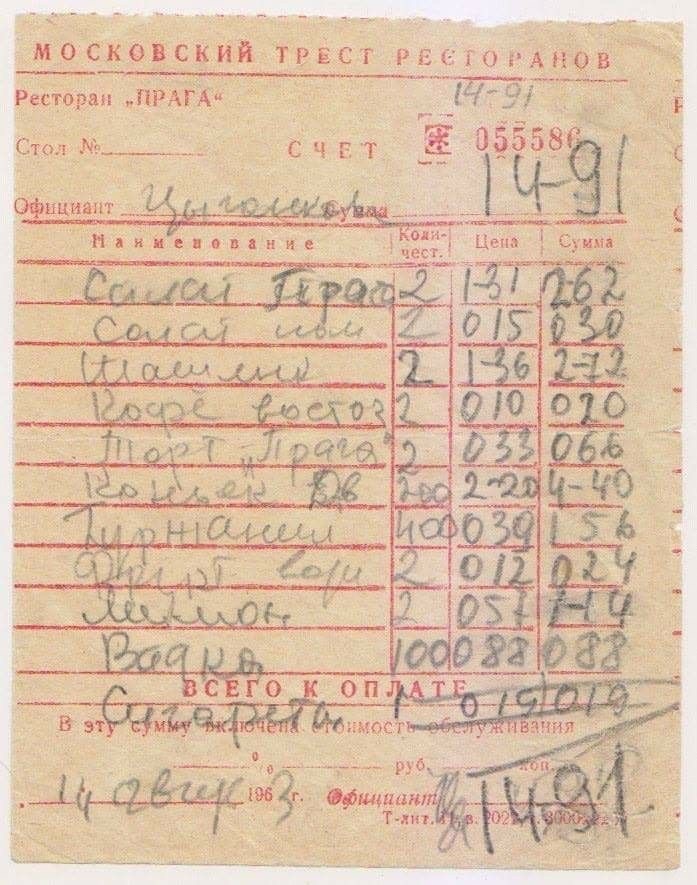 МОСКОВСКИЙ ТРЕСТ РЕСТОРАНОВ
14-91
Ресторан „ПРАГА“
Стол № СЧЕТ 055586
14-91
Официант Сумма
Наименование Коли- Цена Сумма
чест.
Салат Прага 2 1-31 2-62
Салат пом 2 015 030
Шашлык 2 1-36 2-72
Кофе восточ 2 010 020
Торт „Прага“ 2 033 066
Коньяк 200 2-20 4-40
Гурджаани 400 039 156
Фрукт воды 2 012 024
Лимон 2 057 1-14
Водка 100 088 088
ВСЕГО К ОПЛАТЕ
Сигареты 1 019 019
В эту сумму включена стоимость обслуживания
% руб. коп.
14 август 1963 г. Официант 14-91
Т-лит.